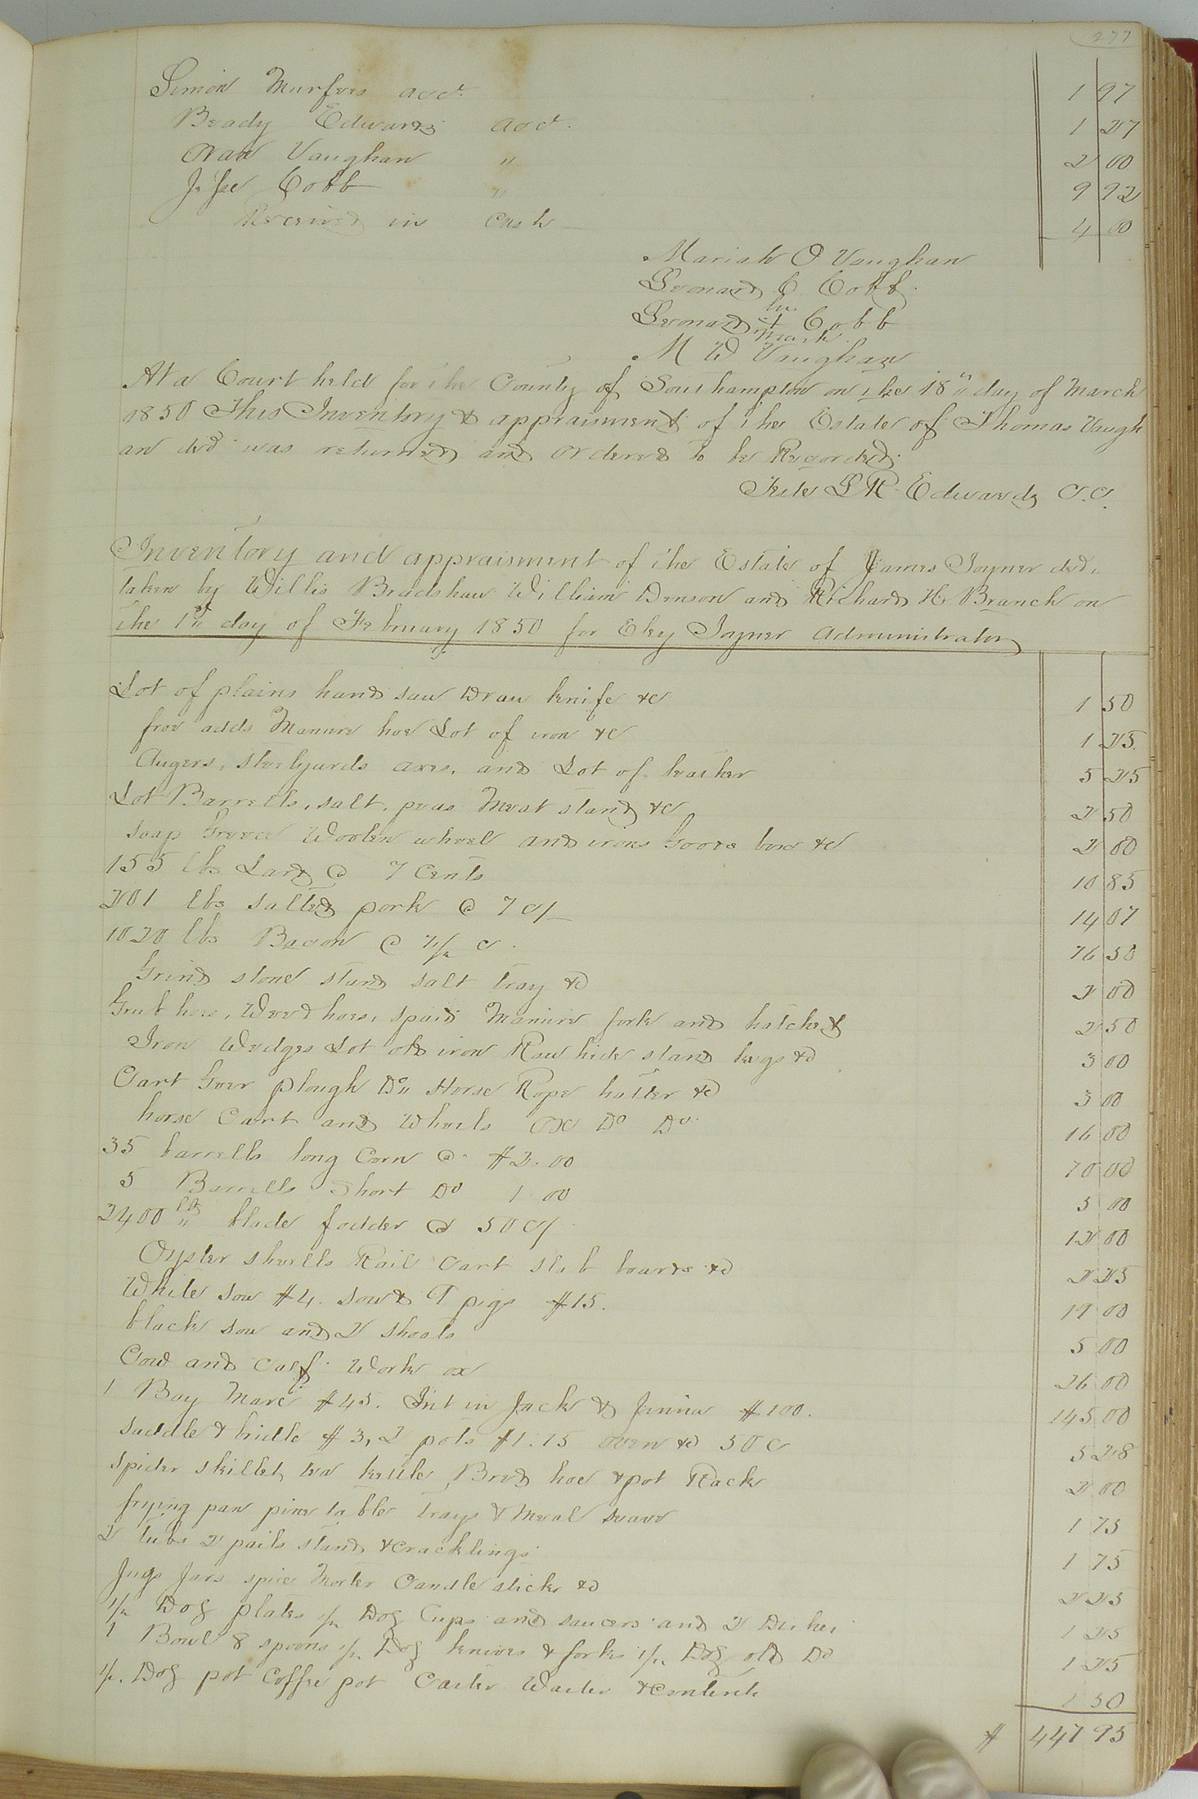 277
Simon Murfree acct. 1 97
Beady Edwards acct. 1 27
Vaughan " 2 00
Jesse Cobb " 9 92
Received in Cash 4 00
Mariah O Vaughan
Leonard C Cobb
his
Leonard + Cobb
mark
M W Vaughan
At a Court held for the County of Southampton on the 18" day of March
1850 This Inventory & appraisment of the Estate of Thomas Vaugh
an decd was returned and ordered to be Recorded.
Teste L R Edwards C.C.
Inventory and appraisment of the Estate of James Joyner decd.
taken by Willis Bradshaw William Denson and Richard H. Branch on
the 1st day of February 1850 for Eley Joyner Administrator
Lot of plains hand saw Draw knife &c 1 50
froe adds Manure hoe Lot of iron &c 1 25
Augers, steelyards axes, and Lot of leather 5 25
Lot Barrells, salt, peas Meat stand &c 2 50
Soap Woolen wheel and irons bow &c 2 00
155 lbs Lard @ 7 Cents 10 85
201 lbs salted pork @ 7 c/ 14 07
1020 lbs Bacon @ 7 1/2 c. 76 50
Grind stone stand salt tray &c 2 00
Grub hoes, Weed hoes, spade Manure fork and hatchet 2 50
Iron Wedges Lot old iron Raw hide stand kegs &c 3 00
Cart Geer plough Do" Horse Rope halter &c 3 00
horse Cart and Wheels Ox Do Do 16 00
35 barrells long Corn @ $2.00 70 00
5 Barrells Short Do 1 00 5 00
2400 lbs blade fodder @ 50 c/ 12 00
Oyster shells Rail Cart slab boards &c 2 25
White sow $4. sow & 9 pigs $15. 19 00
black sow and 2 shoats 5 00
Cow and calf. Work ox 26 00
1 Bay Mare $45. Int in Jack & Jinnia $100. 145 00
saddle & bridle $3, 2 pots $1.75 oven &c 50 c 5 28
spider skillet, tea kettle, Bred hoe & pot Rack 2 00
frying pan pine table trays & Meal 1 75
2 tubs 2 pails stand & cracklings 1 75
Jugs Jars spice Morter Candle sticks &c 2 25
1/2 Doz plates 1/2 Doz Cups and saucers and 2 Dishes 1 25
1 Bowl 8 spoons 1/2 Doz knives & forks 1/2 Doz old Do 1 25
1/2 Doz pot Coffee pot Caster Waiter & contents 1 50
$ 447 95